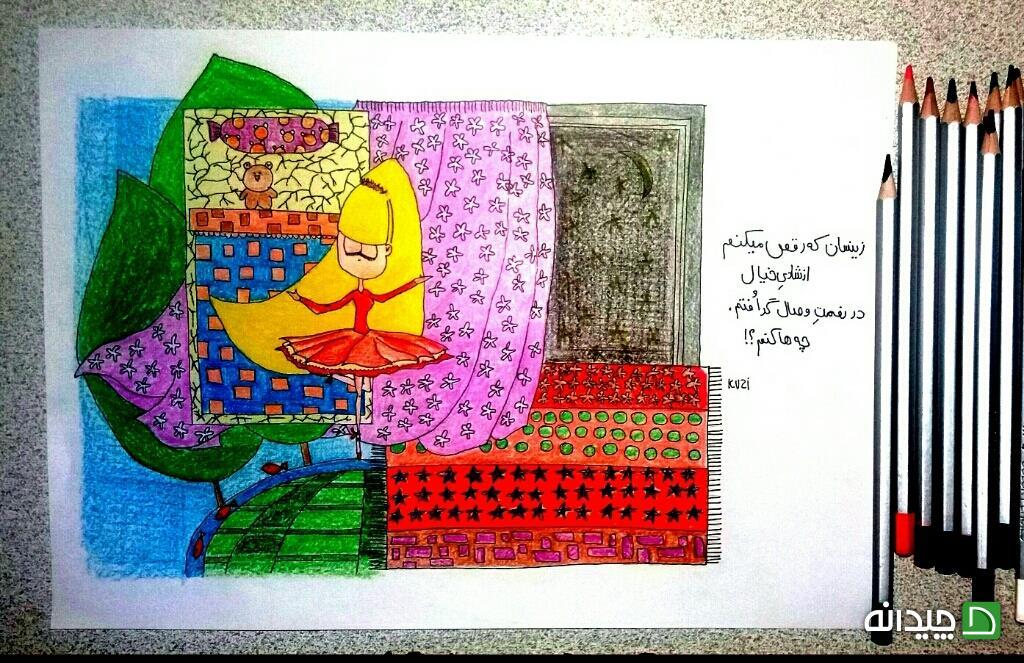 زینسان که رقص میکنم
از شادیِ خیال
در رهتِ وصال گر اُفتم،
چه ها کنم؟!
K.VZi
چیدانه